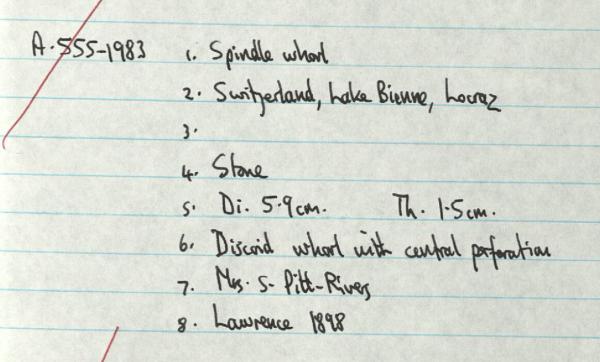 A.555-1983 1. Spindle whorl
2. Switzerland, Lake Bienne, Locraz
3.
4. Stone
5. Di. 5.9cm. Th. 1.5cm.
6. Discoid whorl with central perforation
7. Mrs. S. Pitt-Rivers
8. Lawrence 1898